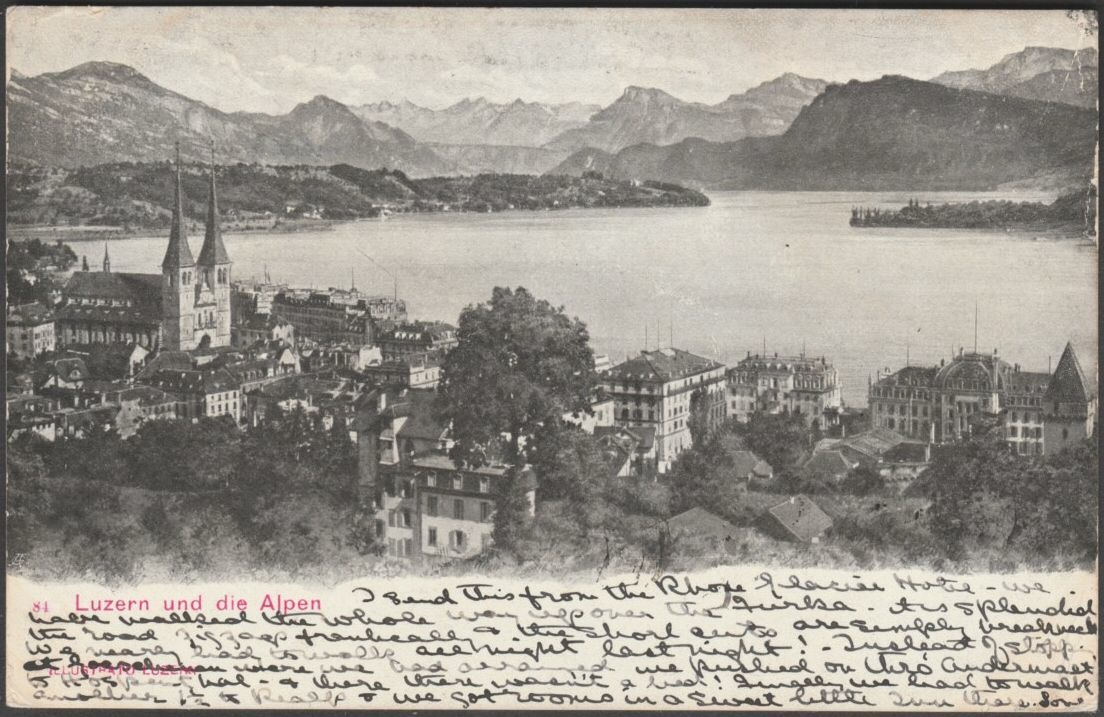 84 Luzern und die Alpen
I send this from the Rhone Glacier Hotel - we
have walked the whole way up over the Furka. It is splendid
the road zigzags frantically & the short cuts are simply breakneck
We nearly had to walk all night last night! - Instead of stopp-
at where we had arranged we pushed on thro' Andermatt
to - & there there wasn't a bed! Finally we had to walk
another 1½ to Realp & we got rooms in a sweet little Inn there.
ILLUSTRATO LUZERN